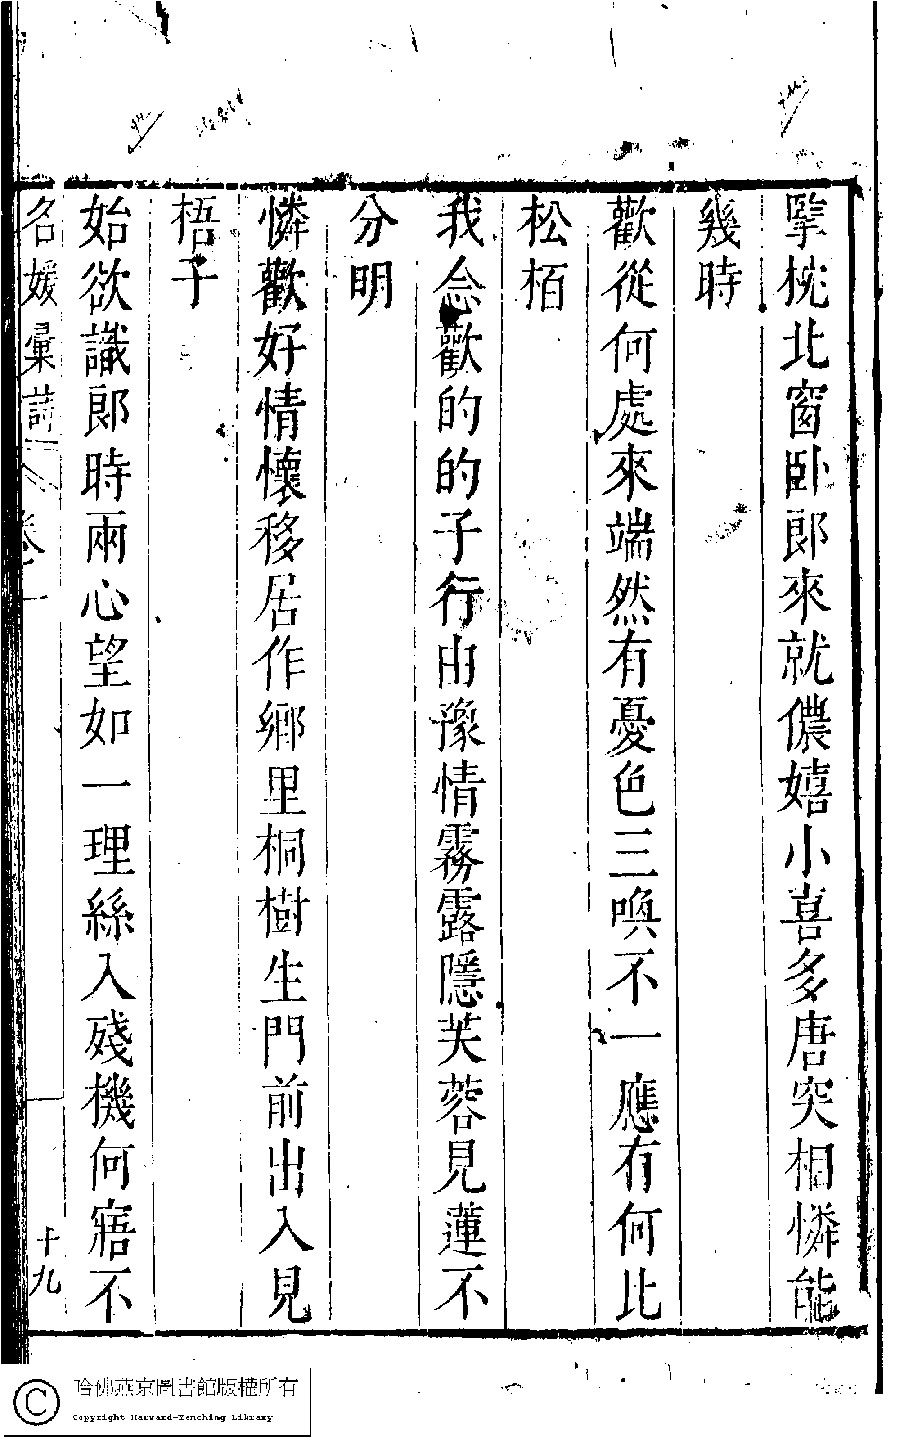 擥枕北窗卧郎來就儂嬉小喜多唐突相憐能
幾時
歡從何處來端然有憂色三喚不一應有何比
松栢
我念歡的的子行由豫情霧露隱芙蓉見蓮不
分明
憐歡好情懷移居作鄉里桐樹生門前出入見
梧子
始欲識郎時兩心望如一理絲入殘機何寤不
名媛彙詩
卷
十九
哈佛燕京圖書館版權所有
Copyright Harvard-Yenching Library